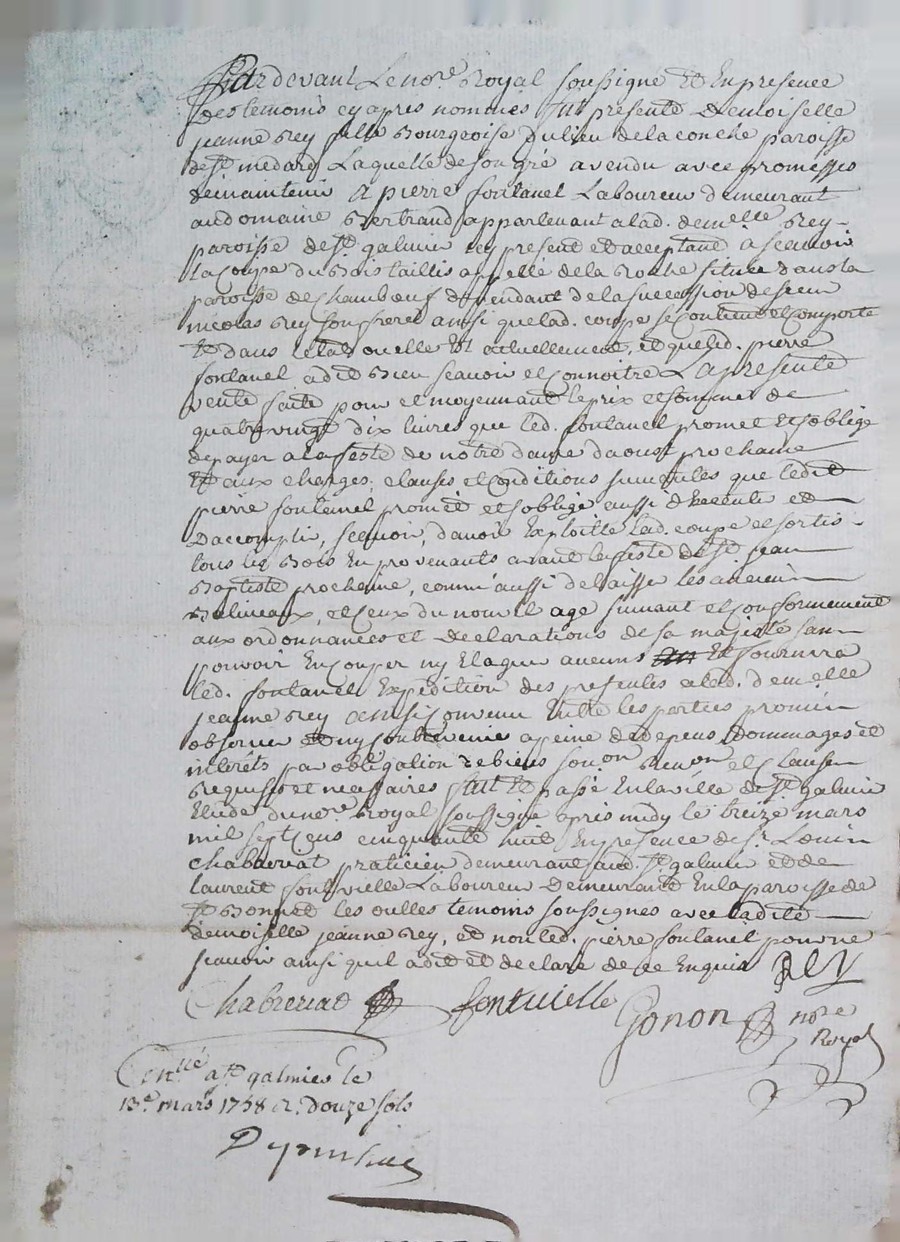 Pardevant Le no.re Royal soussigné Et En presence
des temoins cy apres nommés fut presente Demoiselle
jeanne Rey fille Bourgeoise du lieu de la conche paroisse
de S.t medard Laquelle de son gré a vendu avec promesses
de maintenir A pierre fontanel Laboureur demeurant
au domaine Bertrand appartenant a lad. dem.elle Rey
paroisse de S.t galmier icy present et acceptant a scavoir
la Coupe du Bois taillis appellé de la Roche située dans la
paroisse de Chambœuf dependant de la succession de sieur
nicolas Rey son frere ainsi que lad. coupe se Contient et Comporte
Et dans l'etat ou elle Est actuellement, et que led. pierre
fontanel a dit Bien scavoir et connoitre La presente
vente faite pour et moyennant le prix et somme de
quatre vingt dix livres que led. fontanel promet et s'oblige
de payer a la feste de notre dame d'aoust prochaine
Et aux charges, clauses et Conditions suivantes que ledit
pierre fontanel promet et s'oblige aussi d'Executer et
D'accomplir, scavoir, d'avoir Exploitté lad. coupe et sortis
tous les Bois En provenants avant la feste de S.t jean
Baptiste prochaine, comm'aussi de laisser les anciens
Baliveaux, et Ceux du nouvel age suivant et Conformement
aux ordonnances et Declarations de sa majesté sans
pouvoir En Couper ny Elaguer aucuns Et fournira
led. fontanel Expedition des presentes a lad. demelle
jeanne Rey ainsi Convenu Entre les parties promis
observer et n'y Contrevenir a peine de depens dommages et
interets par obligation de biens son.on Ren.on et Clauses
Requises et necessaires fait Et passé En la ville de S.t galmier
Etude du no.re Royal soussigné apres midy le treize mars
mil sept cens cinquante huit En presence de s.r Louis
Chabreriat praticien demeurant aud. S.t galmier et de
laurent fontvielle Laboureur Demeurant En la paroisse de
S.t Bonnet les oulles temoins soussignés avec ladite
demoiselle jeanne Rey, et non led. pierre fontanel pour ne
scavoir ainsi qu'il a dit et declaré de ce Enquis Rey
Chabreriat fontvielle
Gonon no.re
Royal
Con.llé a S.t galmier le
13.e mars 1758 R. douze sols